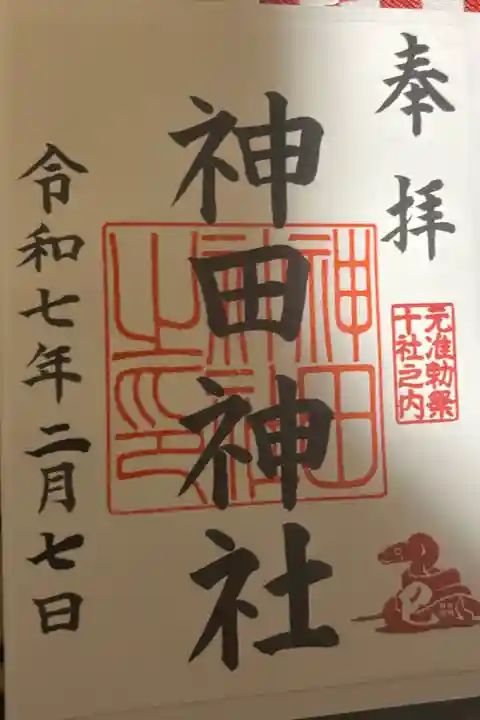 奉拝
元准勅祭
十社之内
神田神社
神田
神社
之印
令和七年二月七日
巳